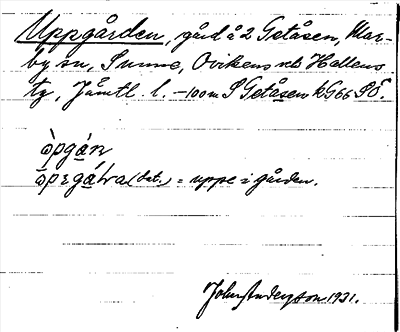 Uppgården, gård å 2 Getåsen, Mar-
by sn, Sunne, Ovikens och Hallens
tg, Jämtl. l. –100 m S Getåsen kG66 SÖ.
(dat.) = uppe i gården.
John Andersson 1931.